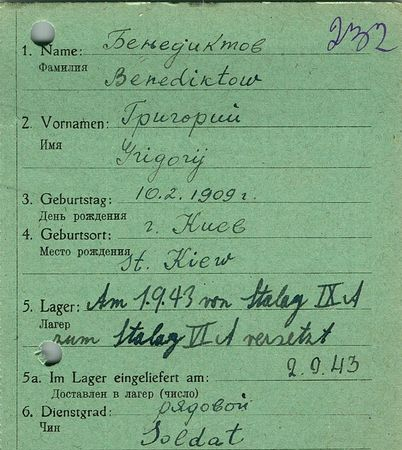 232
1. Name: Бенедиктов
Фамилия Benediktow
2. Vornamen: Григорий
Имя Grigorij
3. Geburtstag: 10.2.1909 г.
День рождения
4. Geburtsort: г. Киев
Место рождения St. Kiew
5. Lager: Am 1.9.43 von Stalag IX A
Лагерь zum Stalag VI A versetzt
5a. Im Lager eingeliefert am: 2.9.43
Доставлен в лагерь (число)
6. Dienstgrad: рядовой
Чин Soldat